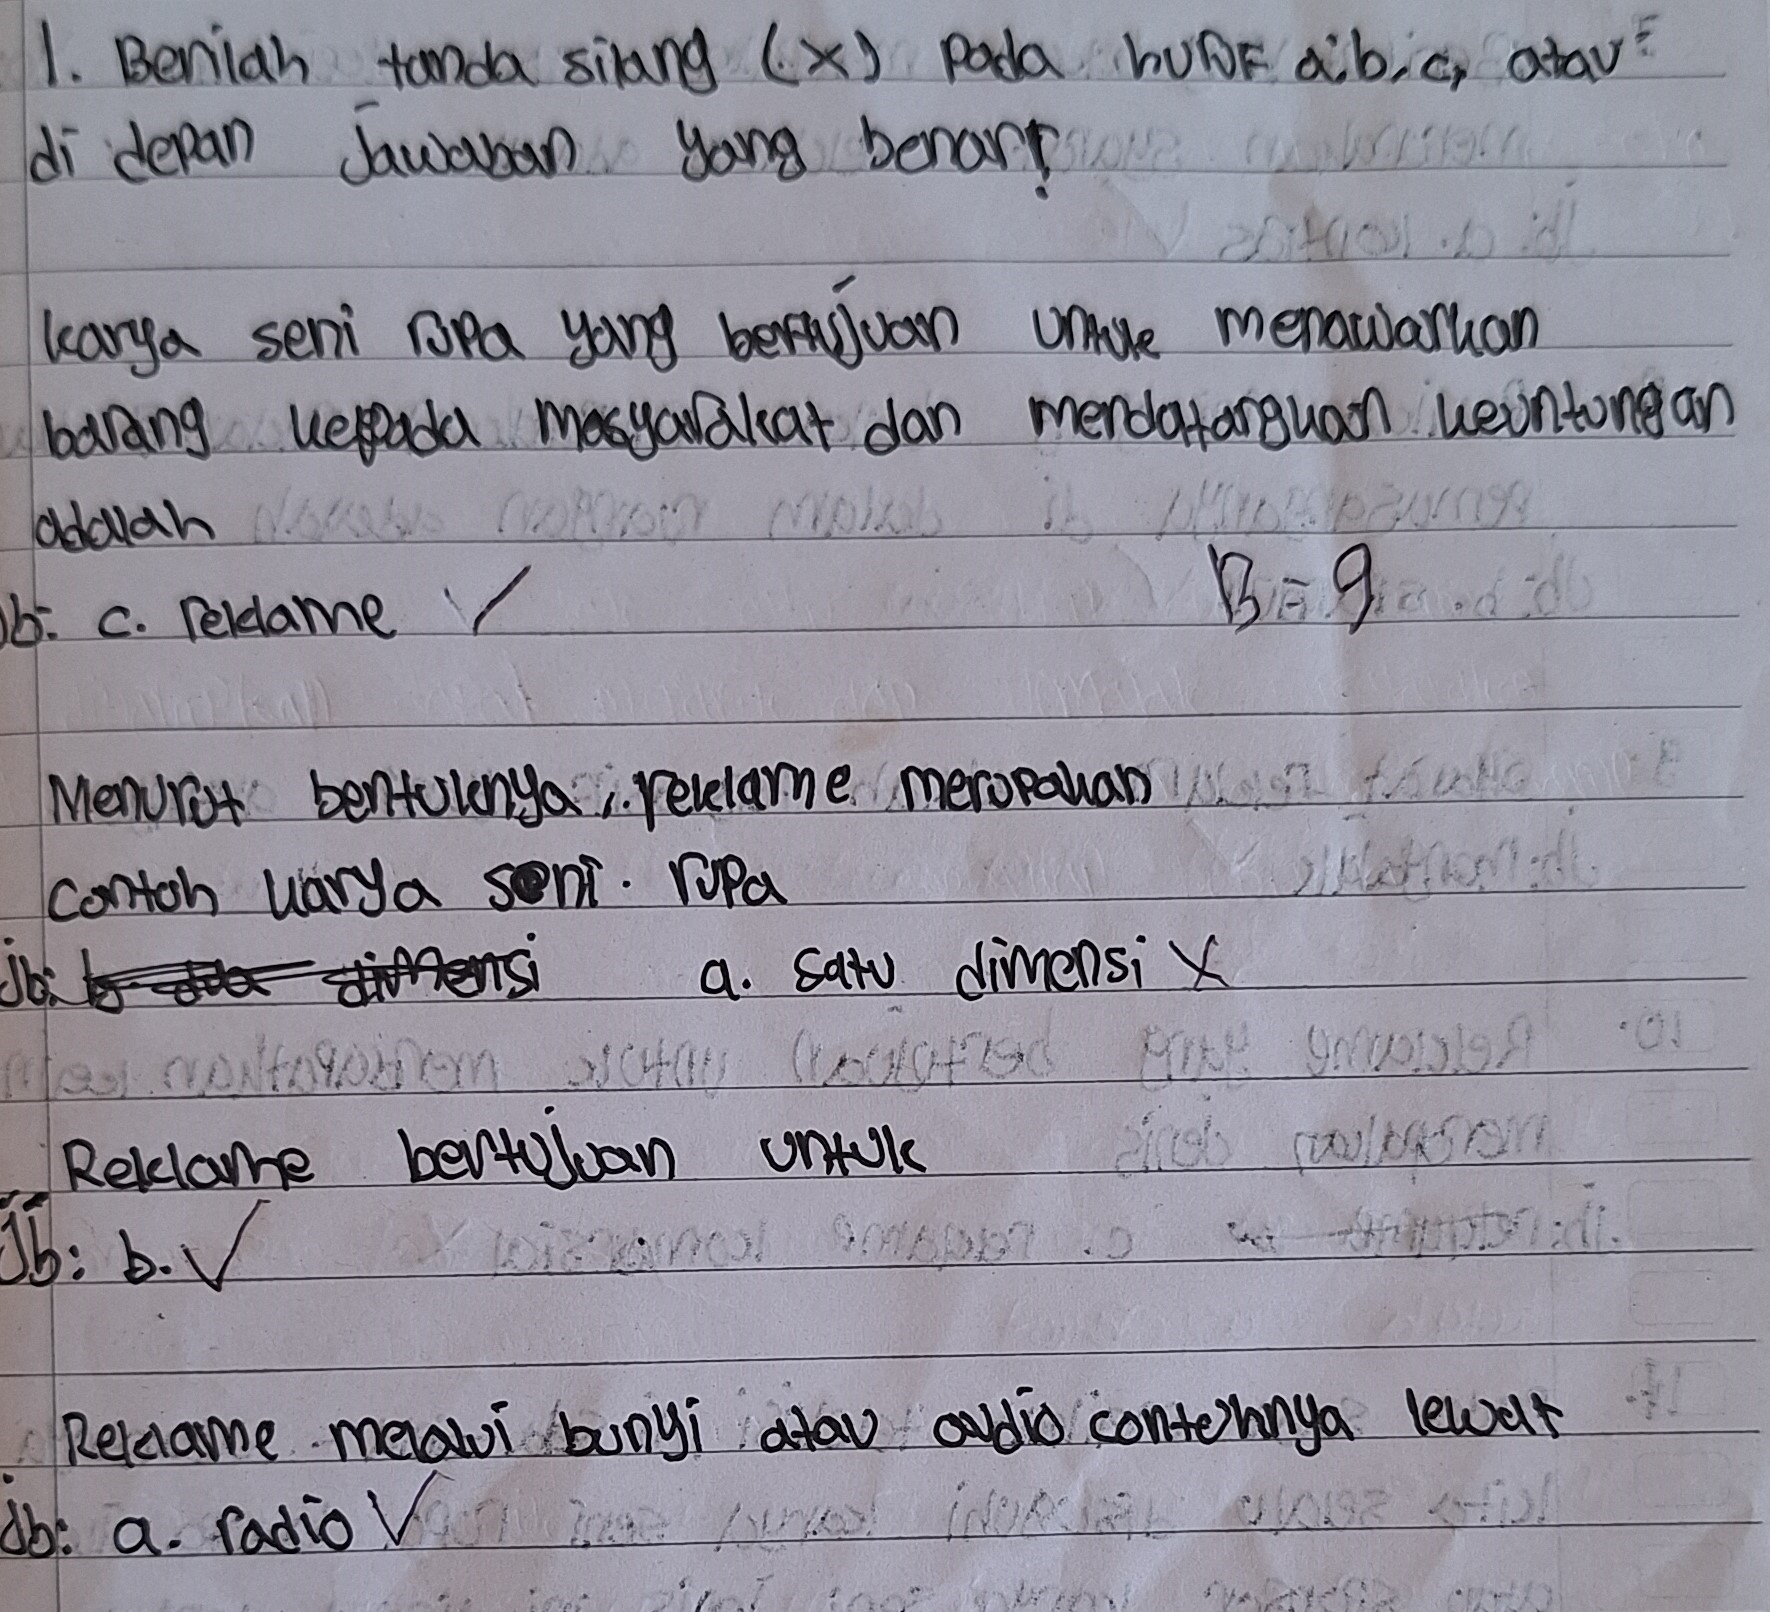 1. Berilah tanda silang (x) pada huruf a.b.c, atau
di depan Jawaban yang benar!
karya seni rupa yang bertujuan untuk menawarkan
barang kepada masyarakat dan mendatangkan keuntungan
adalah
Jb: c. reklame ✓ B = 9
Menurut bentuknya, reklame merupakan
contoh karya seni. rupa
Jb: b dua dimensi a. satu dimensi X
Reklame bertujuan untuk
Jb: b. ✓
Reklame melalui bunyi atau audio contohnya lewat
Jb: a. radio ✓